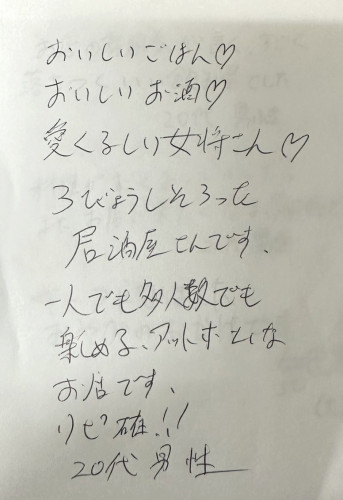 おいしいごはん♡
おいしいお酒♡
愛くるしい女将さん♡
3びょうしそろった
居酒屋さんです、
一人でも多人数でも
楽しめる、アットホームな
お店です、
リピ確!!
20代男性